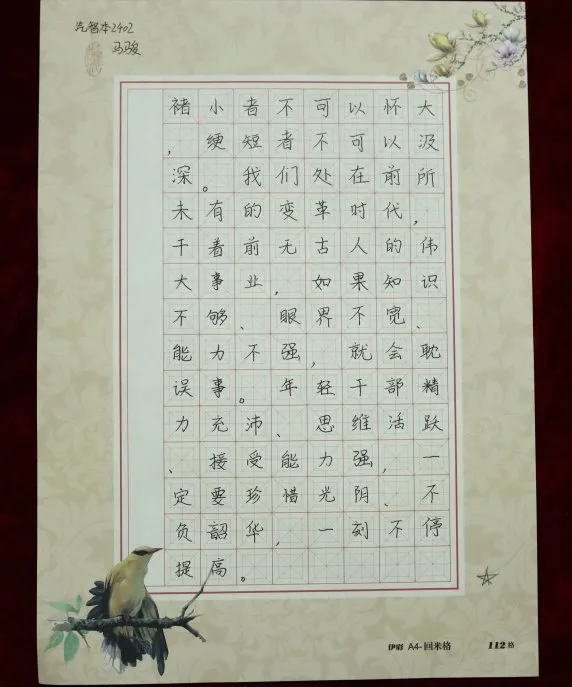 汽智本2402
马骏
褚小者不可以怀大
，绠短者不可以汲
深。我们处在前所
未有的变革时代，
干着前无古人的伟
大事业，如果知识
不够、眼界不宽、
能力不强，就会耽
误事。年轻干部精
力充沛、思维活跃
、接受能力强，一
定要珍惜光阴、不
负韶华，一刻不停
提高。
伊彩 A4-回米格 112格